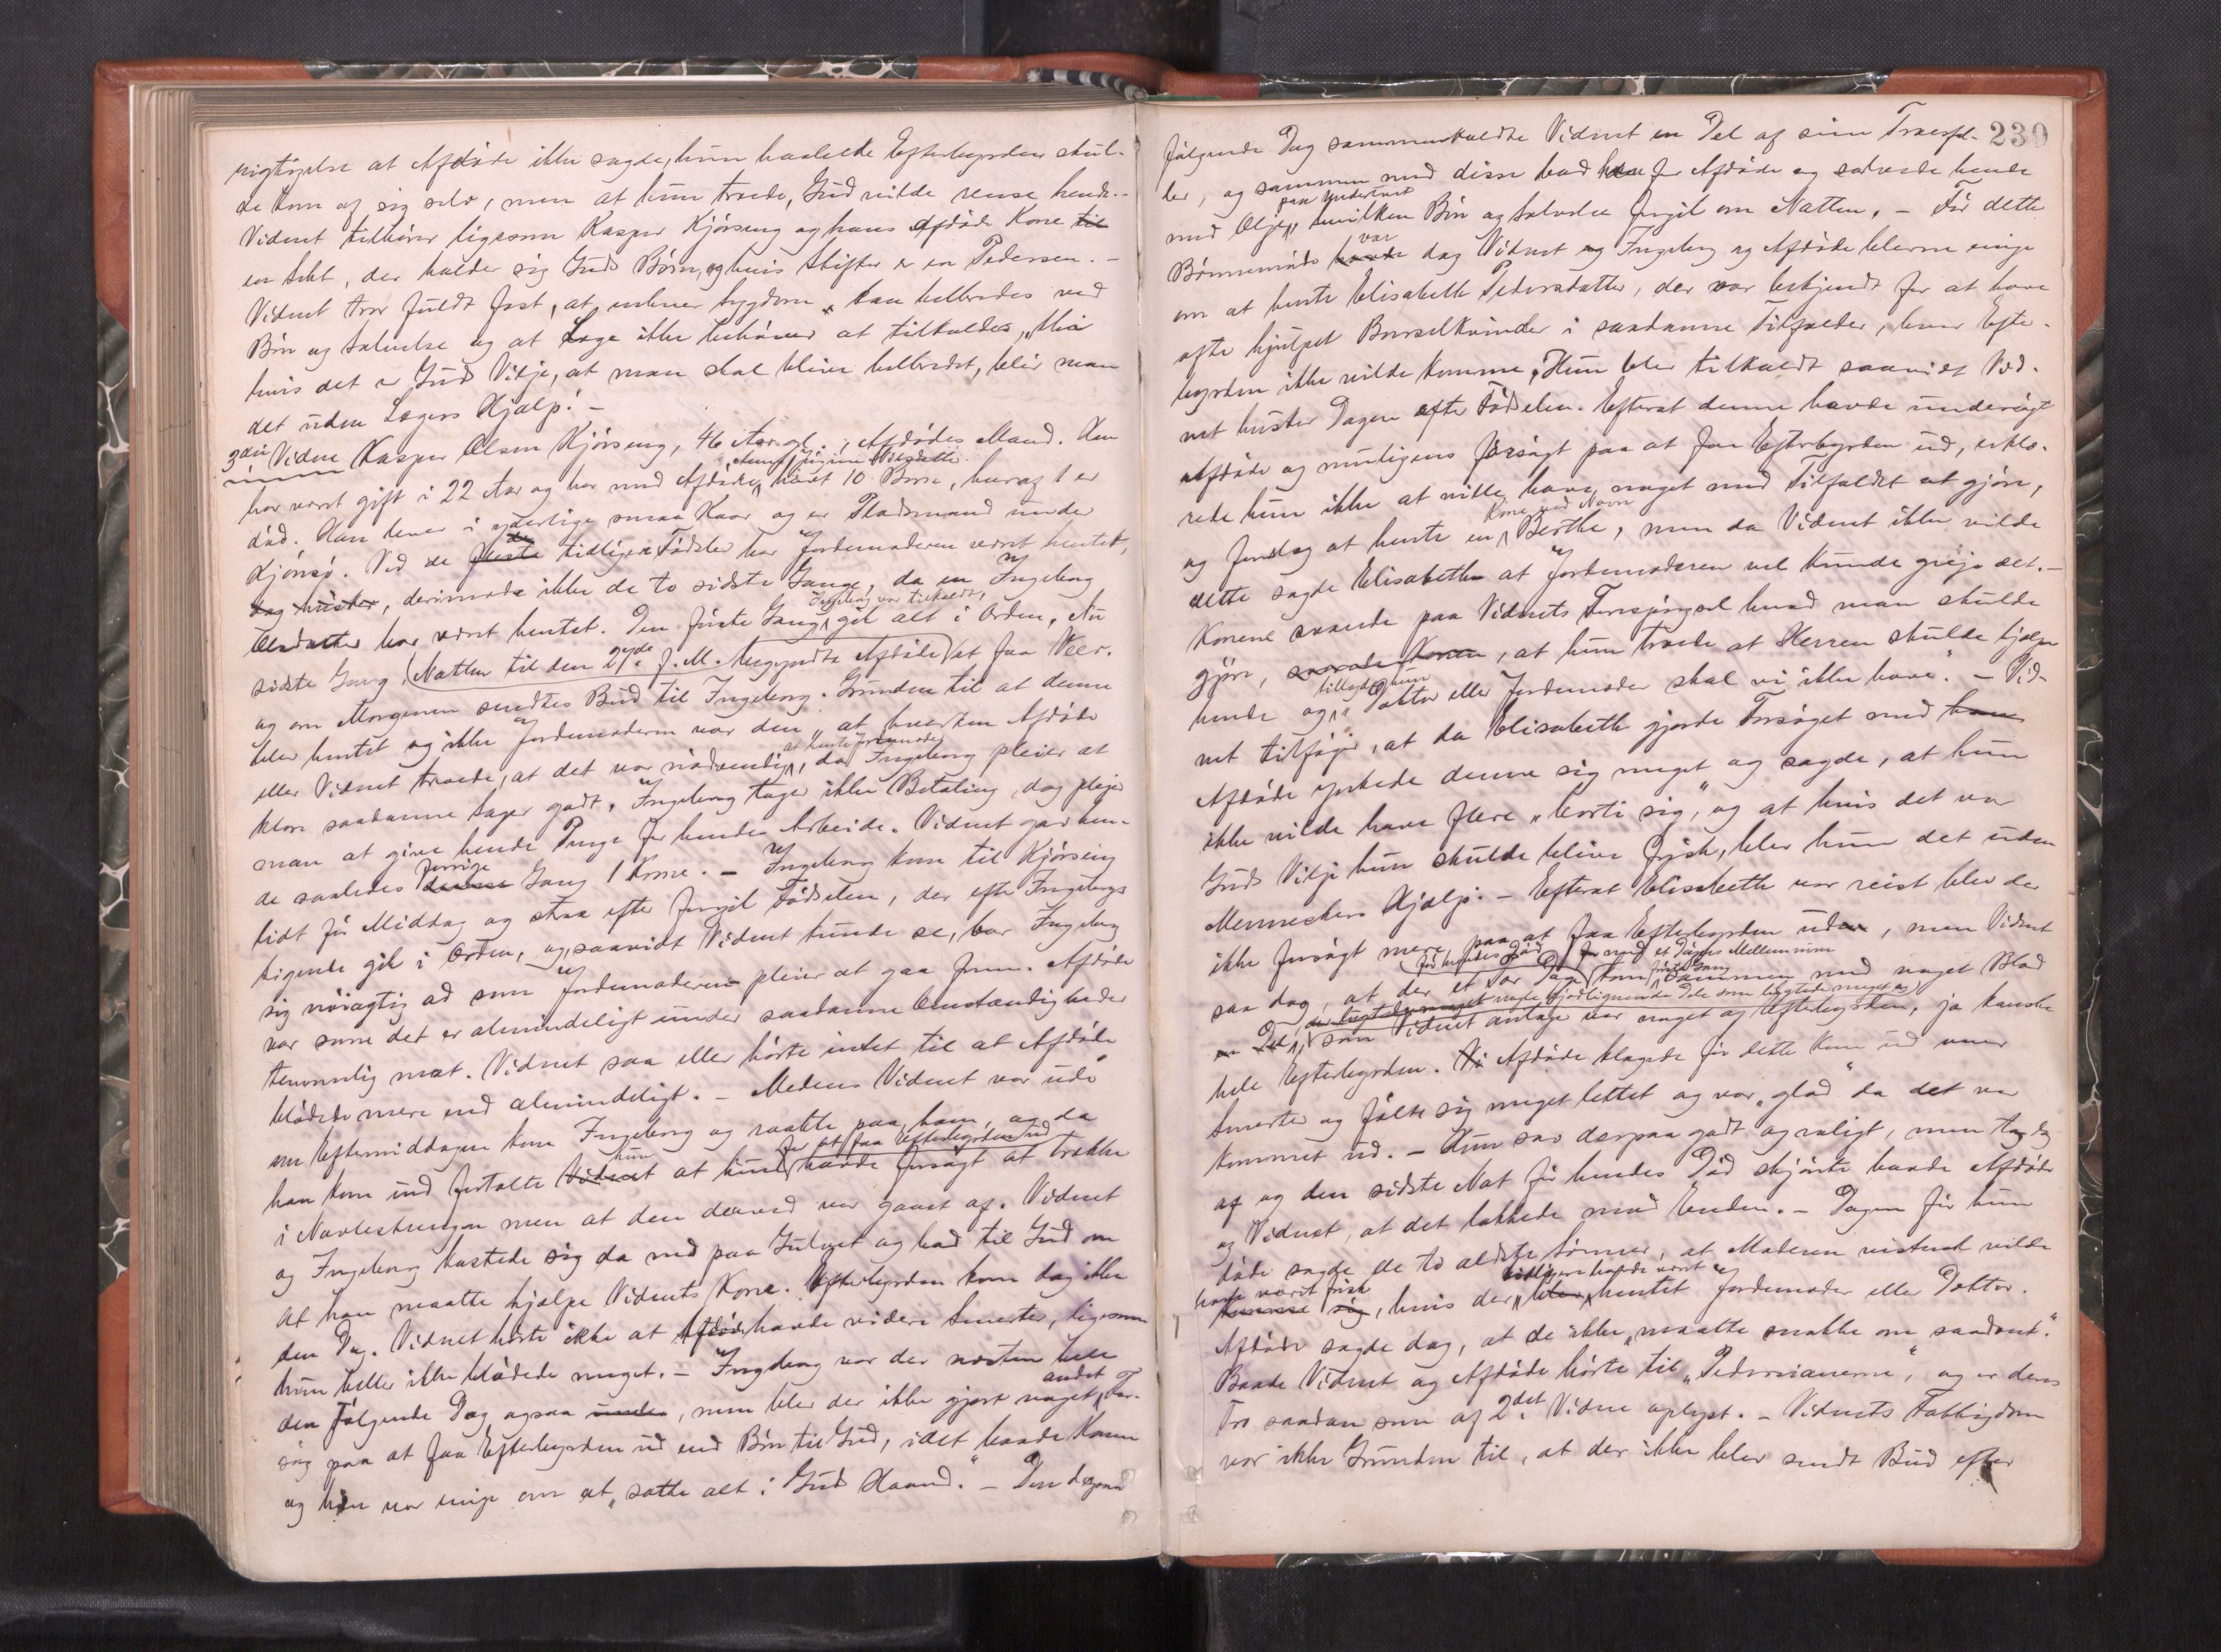 rigtigelse at Afdøde ikke sagde, hun haabede Efterbyrden skul-
de kom af sig selv, men at hun troede, Gud vilde rense hende.-
Vidnet tilhører ligesom Kasper Kjörseng og hans afdøde Kone til
en Sekt, der kalder sig Guds Børn, og hvis Stifter er en Pedersen. -
Vidnet tror fuldt fast, at enhver Sygdom kan helbredes ved
Bøn og Salvelse og at Læge ikke behøver at tilkaldes, "thi
hvis det er Guds Vilje, at man skal blive helbredet, blir man
det uden Lægers Hjælp." -
3die Vidne Kasper Olsen Kjörseng, 46 Aar gl., Afdødes Mand. Han
har været gift i 22 Aar og har med Afdøde havt 10 Børn, hvoraf 1 er
død. Han lever i yderlige smaa Kaar og er Pladsmand under
Kjönsø. Ved de fleste tidligere Fødsler har Jordemoderen været hentet,
dog husker, derimod ikke de to sidste Gange, da en Ingeborg
Olsdatter har været hentet. Den første Gang Ingeborg var tilkaldt, gik alt i Orden. Nu
sidste Gang (Natten til den 2den f.M. begyndte Afdøde) at faa Veer.
og om Morgenen sendtes Bud til Ingeborg. Grunden til at denne
blev hentet og ikke Jordemoderen var den, at hverken Afdøde
eller Vidnet troede, at det var nødvendig at hente Jordmoder, da Ingeborg pleier at
klare saadanne Sager godt. Ingeborg tager ikke Betaling, dog pleier
man at give hende Penge for hendes Arbeide. Vidnet gav hen-
de saaledes forrige denne Gang 1 Krone. - Ingeborg kom til Kjörseng
lidt før Middag og strax efter foregik Fødselen, der efter Ingeborgs
Sigende gik i Orden, og, saavidt Vidnet kunde se, bar Ingeborg
sig nøiagtig ad som Jordemoderen pleier at gaa frem. Afdøde
var som det er almindeligt under saadanne Omstændigheder
temmelig mat. Vidnet saa eller hørte intet til at Afdøde
blødede mere end almindeligt. - Medens Vidnet var ude
om Eftermiddagen kom Ingeborg og raabte paa ham, og da
han kom ind fortalte Vidnet hun at hun for at faa Efterbyrden ud havde forsøgt at trække
i Navlestrengen men at den derved var gaaet af. Vidnet
og Ingeborg kastede sig da ned paa Gulvet og bad til Gud om
at han maatte hjælpe Vidnets Kone. Efterbyrden kom dog ikke
den Dag. Vidnet hørte ikke at Afdøde havde videre Smerter, ligesom
hun heller ikke blødede meget. - Ingeborg var der næsten hele
den følgende Dag ogsaa, men blev der ikke gjort noget andet For-
søg paa at faa Efterbyrden ud end Bøn til Gud, idet baade Konen
og han var enige om at "sætte alt i Guds Haand." - Den derpaa
230
følgende Dag sammenkaldte Vidnet en Del af sine Troesfæl-
ler, og sammen med disse bad han for Afdøde og salvede hende
med Olje paa Underlivet, hvilken Bøn og Salvelse foregik om Natten. - Før dette
Bønnemøde havde var dog Vidnet og Ingeborg og Afdøde blevne enige
om at hente Elisabeth Pedersdatter, der var bekjendt for at have
ofte hjulpet Barselkvinder i saadanne Tilfælder, hvor Efter-
byrden ikke vilde komme. Hun blev tilkaldt saavidt Vid-
net husker Dagen efter Fødselen. Efterat denne havde undersøgt
Afdøde og muligens forsøgt paa at faa Efterbyrden ud, erklæ-
rede hun ikke at ville have noget med Tilfældet at gjøre,
og foreslog at hente en Kone ved Navn Berthe, men da Vidnet ikke vilde
dette sagde Elisabeth at Jordemoderen vel kunde greje det. -
Konen svarede paa Vidnets Forespørgsel hvad man skulde
gjøre, svarede Konen, at hun troede at Herren skulde hjælpe
hende og, tilføjede hun "Doktor eller Jordemoder skal vi ikke have." - Vid-
net tilføjer, at da Elisabeth gjorde Forsøget med
Afdøde ynkede denne sig meget og sagde, at hun
ikke vilde have flere "borti sig", og at hvis det var
Guds Vilje hun skulde blive frisk, blev hun det uden
Menneskers Hjælp. - Efterat Elisabeth var reist blev der
ikke forsøgt mere paa at faa Efterbyrden ud, men Vidnet
saa dog, at der et Par Dage før hendes Død med et Døgns Mellemrum kom første Gang sammen med noget Blod
en Del, nogle kjødlignende Dele som lugtede meget og som Vidnet antage var noget af Efterbyrden, ja kanske
hele Efterbyrden. Afdøde klagede før dette kom ud over
Smerter og følte sig meget lettet og var "glad" da det var
kommet ud. - Hun sov derpaa godt og roligt, men tog dog
af og den sidste Nat før hendes Død skjønte baade Afdøde
og Vidnet, at det lakkede mod Enden. - Dagen før hun
døde sagde de to ældste Sønner, at Moderen vistnok vilde
have været frisk, hvis der tidligere havde været blev hentet Jordemoder eller Doktor.
Afdøde sagde dog, at de ikke "maatte snakke om saadant."
Baade Vidnet og Afdøde hørte til "Pedersianerne", og er deres
Tro saadan som af 2det Vidne oplyst. - Vidnets Fattigdom
var ikke Grunden til, at der ikke blev sendt Bud efter